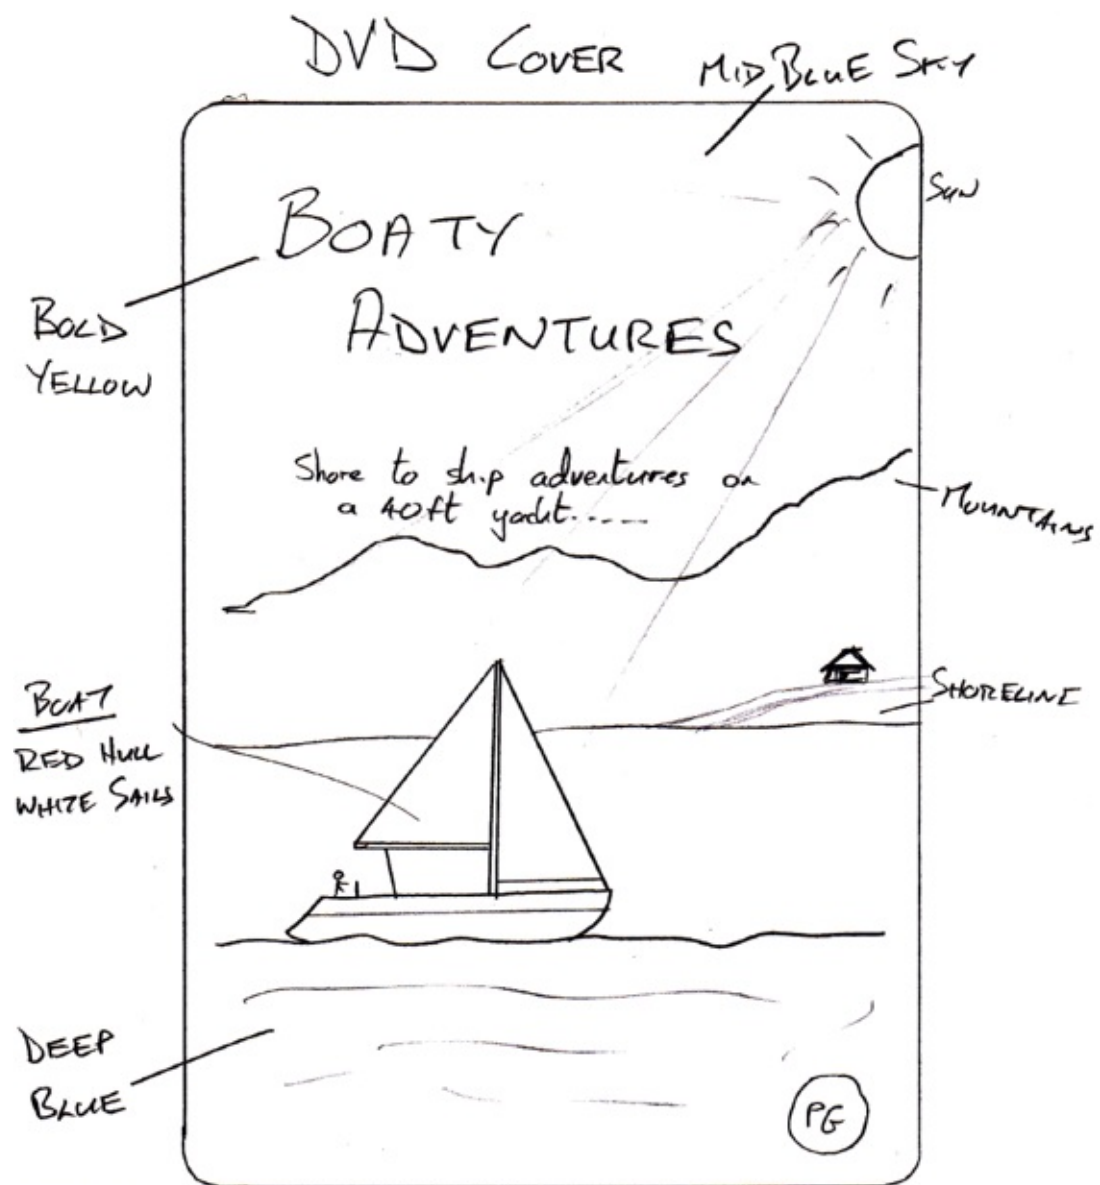 DVD COVER
MID BLUE SKY
SUN
BOATY
ADVENTURES
BOLD
YELLOW
Shore to ship adventures on
a 40ft yacht.....
MOUNTAINS
SHORELINE
BOAT
RED HULL
WHITE SAILS
DEEP
BLUE
PG